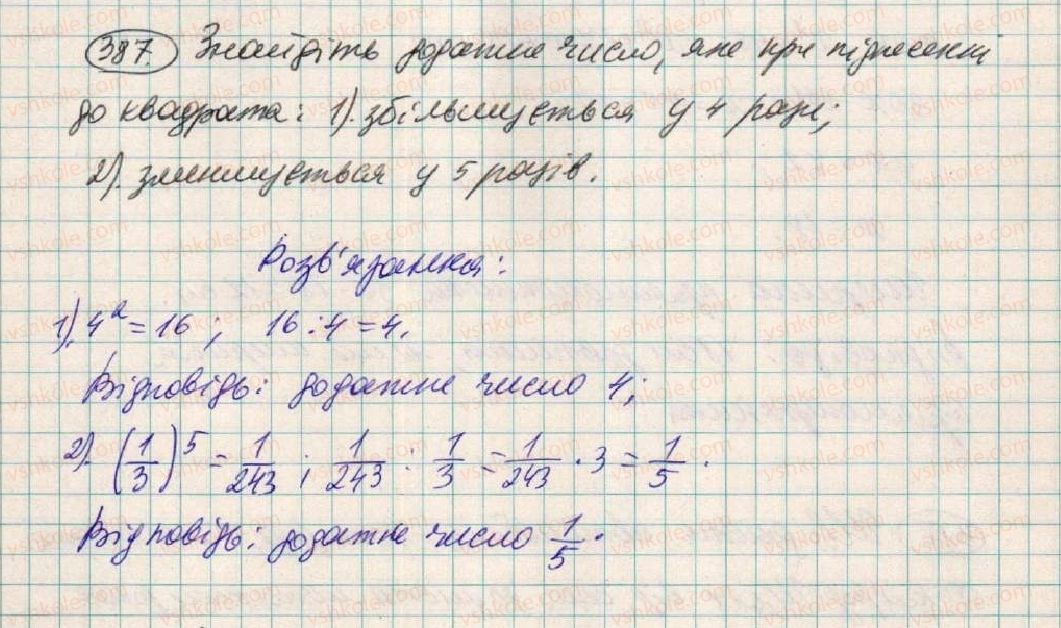 387. Знайдіть додатне число, яке при піднесенні
до квадрата: 1). збільшується у 4 рази;
2). зменшується у 5 разів.
Розв'язання:
1). 4² = 16; 16 : 4 = 4.
Відповідь: додатне число 4;
2). (1/3)⁵ = 1/243; 1/243 : 1/3 = 1/243 · 3 = 1/5.
Відповідь: додатне число 1/5.